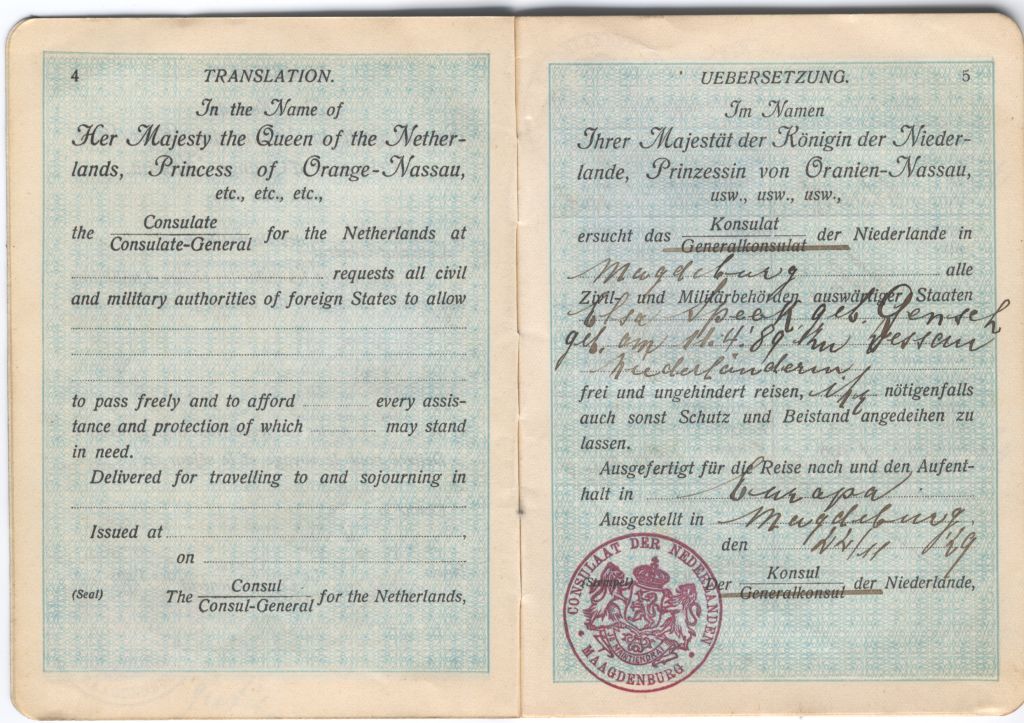 4
TRANSLATION.
In the Name of
Her Majesty the Queen of the Nether-
lands, Princess of Orange-Nassau,
etc., etc., etc.,
the Consulate
Consulate-General for the Netherlands at
requests all civil
and military authorities of foreign States to allow
to pass freely and to afford every assis-
tance and protection of which may stand
in need.
Delivered for travelling to and sojourning in
Issued at ,
on
(Seal) The Consul
Consul-General for the Netherlands,
UEBERSETZUNG.
5
Im Namen
Ihrer Majestät der Königin der Nieder-
lande, Prinzessin von Oranien-Nassau,
usw., usw., usw.,
ersucht das Konsulat
Generalkonsulat der Niederlande in
Magdeburg alle
Zivil- und Militärbehörden auswärtiger Staaten
Elsa Speck geb. Gensch
geb. am 11.4.'89 in Dessau
Niederländerin
frei und ungehindert reisen, nötigenfalls
auch sonst Schutz und Beistand angedeihen zu
lassen.
Ausgefertigt für die Reise nach und den Aufent-
halt in Europa
Ausgestellt in Magdeburg.
den 22/11 '29
(Stempel) Der Konsul
Generalkonsul der Niederlande,
CONSULAAT DER NEDERLANDEN
JE MAINTIENDRAI
MAAGDENBURG